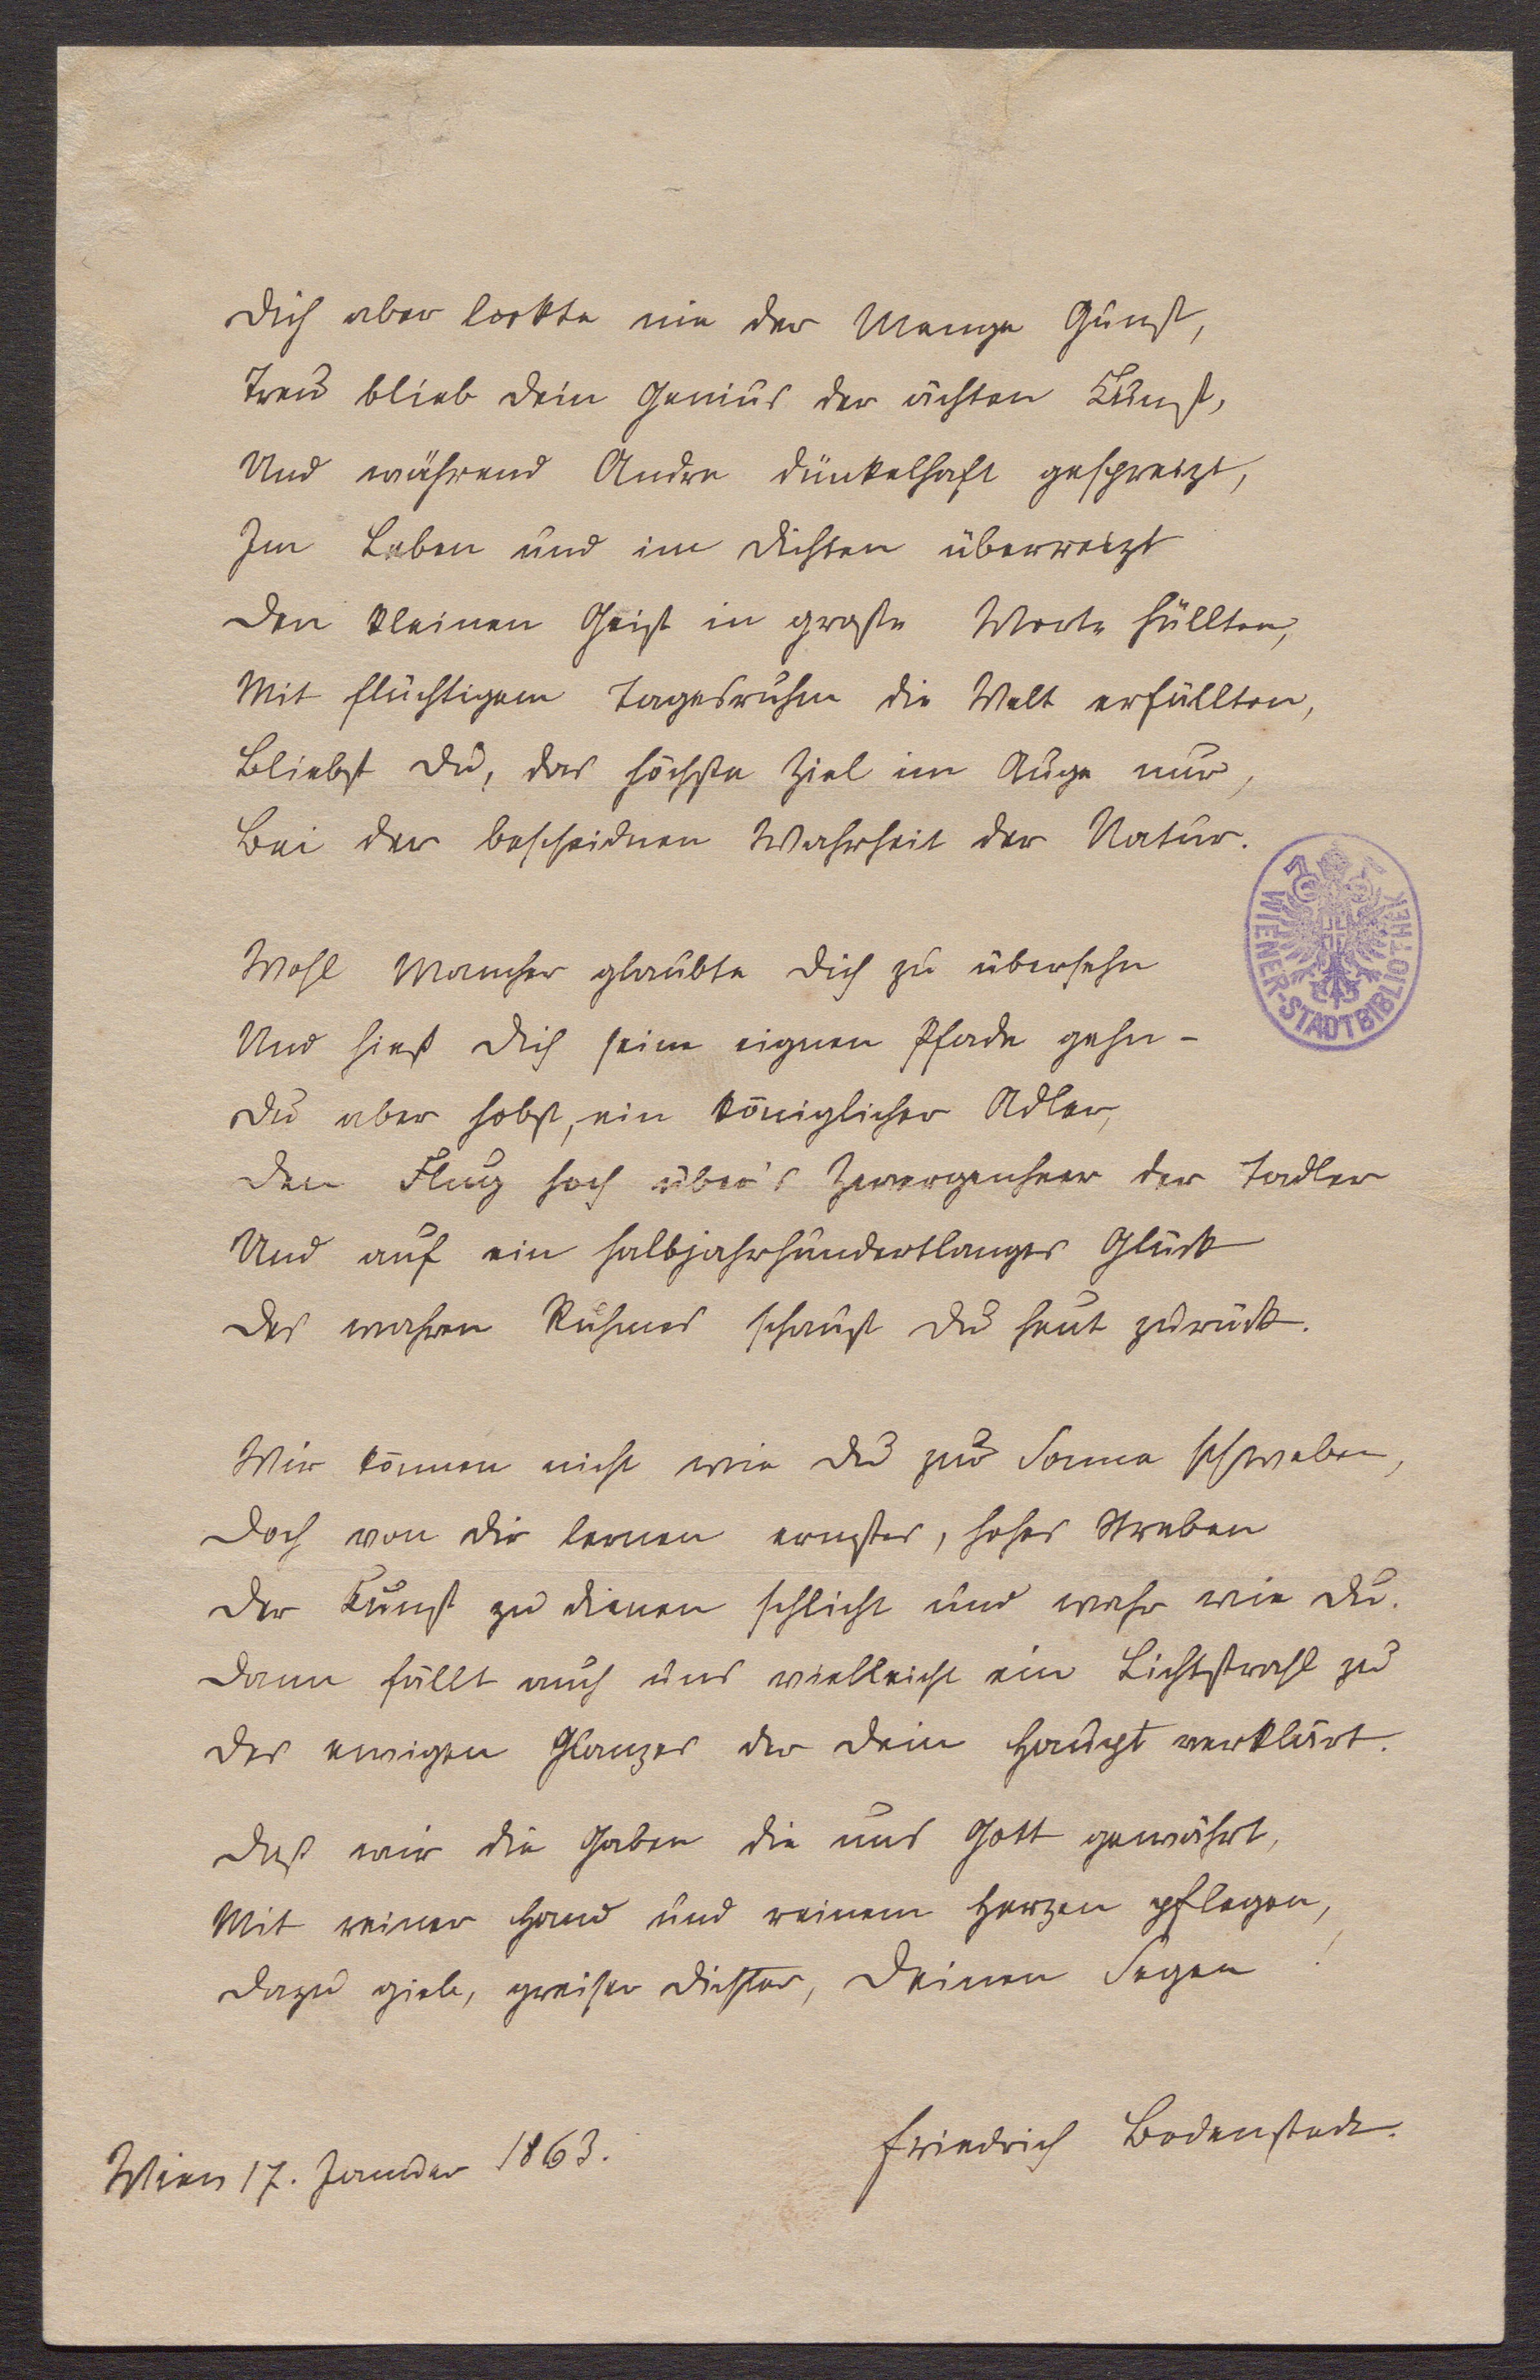 Dich aber lockte nie der Menge Gunst,
Treu blieb Dein Genius der ächten Kunst,
Und während Andre dünkelhaft gespreizt,
Im Leben und im Dichten überreizt
Den kleinen Geist in große Worte hüllten,
Mit flüchtigem Tagesruhm die Welt erfüllten,
Bliebst Du, das höchste Ziel im Auge nur,
Bei der bescheidnen Wahrheit der Natur.
WIENER-STADTBIBLIOTHEK
Wohl Mancher glaubte Dich zu übersehn
Und hieß Dich seine eignen Pfade gehn –
Du aber hobst, ein königlicher Adler,
Den Flug hoch über's Zwergenheer der Tadler
Und auf ein halbjahrhundertlanges Glück
Des wahren Ruhmes schaust Du heut zurück.
Wir können nicht wie Du zur Sonne schweben,
Doch von Dir lernen ernstes, hohes Streben
Der Kunst zu dienen schlicht und wahr wie Du.
Dann fällt auch uns vielleicht ein Lichtstrahl zu
Des ewigen Glanzes der Dein Haupt verklärt.
Daß wir die Gaben die uns Gott gewährt,
Mit reiner Hand und reinem Herzen pflegen,
Dazu gieb, greiser Dichter, Deinen Segen!
Friedrich Bodenstedt.
Wien 17. Januar 1863.